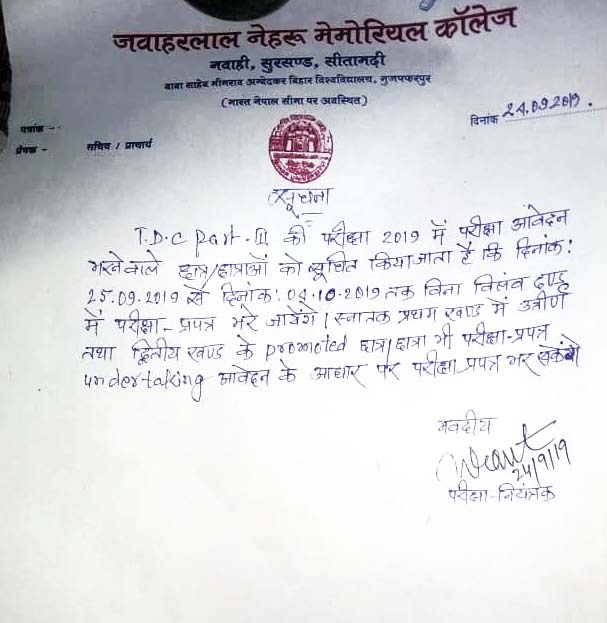 जवाहरलाल नेहरू मेमोरियल कॉलेज
नवाही, सुरसण्ड, सीतामढी
बाबा साहेब भीमराव अम्बेदकर बिहार विश्वविद्यालय, मुजफ्फरपुर
(भारत नेपाल सीमा पर अवस्थित)
पत्रांक -
दिनांक 24.09.2019.
प्रेषक - सचिव / प्राचार्य
सूचना
T.D.C Part-III की परीक्षा 2019 में परीक्षा आवेदन
भरनेवाले छात्र/छात्राओं को सूचित किया जाता है कि दिनांक:
25.09.2019 से दिनांक: 04.10.2019 तक बिना विलंब दण्ड
में परीक्षा-प्रपत्र भरे जायेंगे। स्नातक प्रथम खण्ड में उत्रीर्ण
तथा द्वितीय खण्ड के promoted छात्र/छात्रा भी परीक्षा-प्रपत्र
undertaking आवेदन के आधार पर परीक्षा प्रपत्र भर सकेंगे
भवदीय
24/9/19
परीक्षा-नियंत्रक